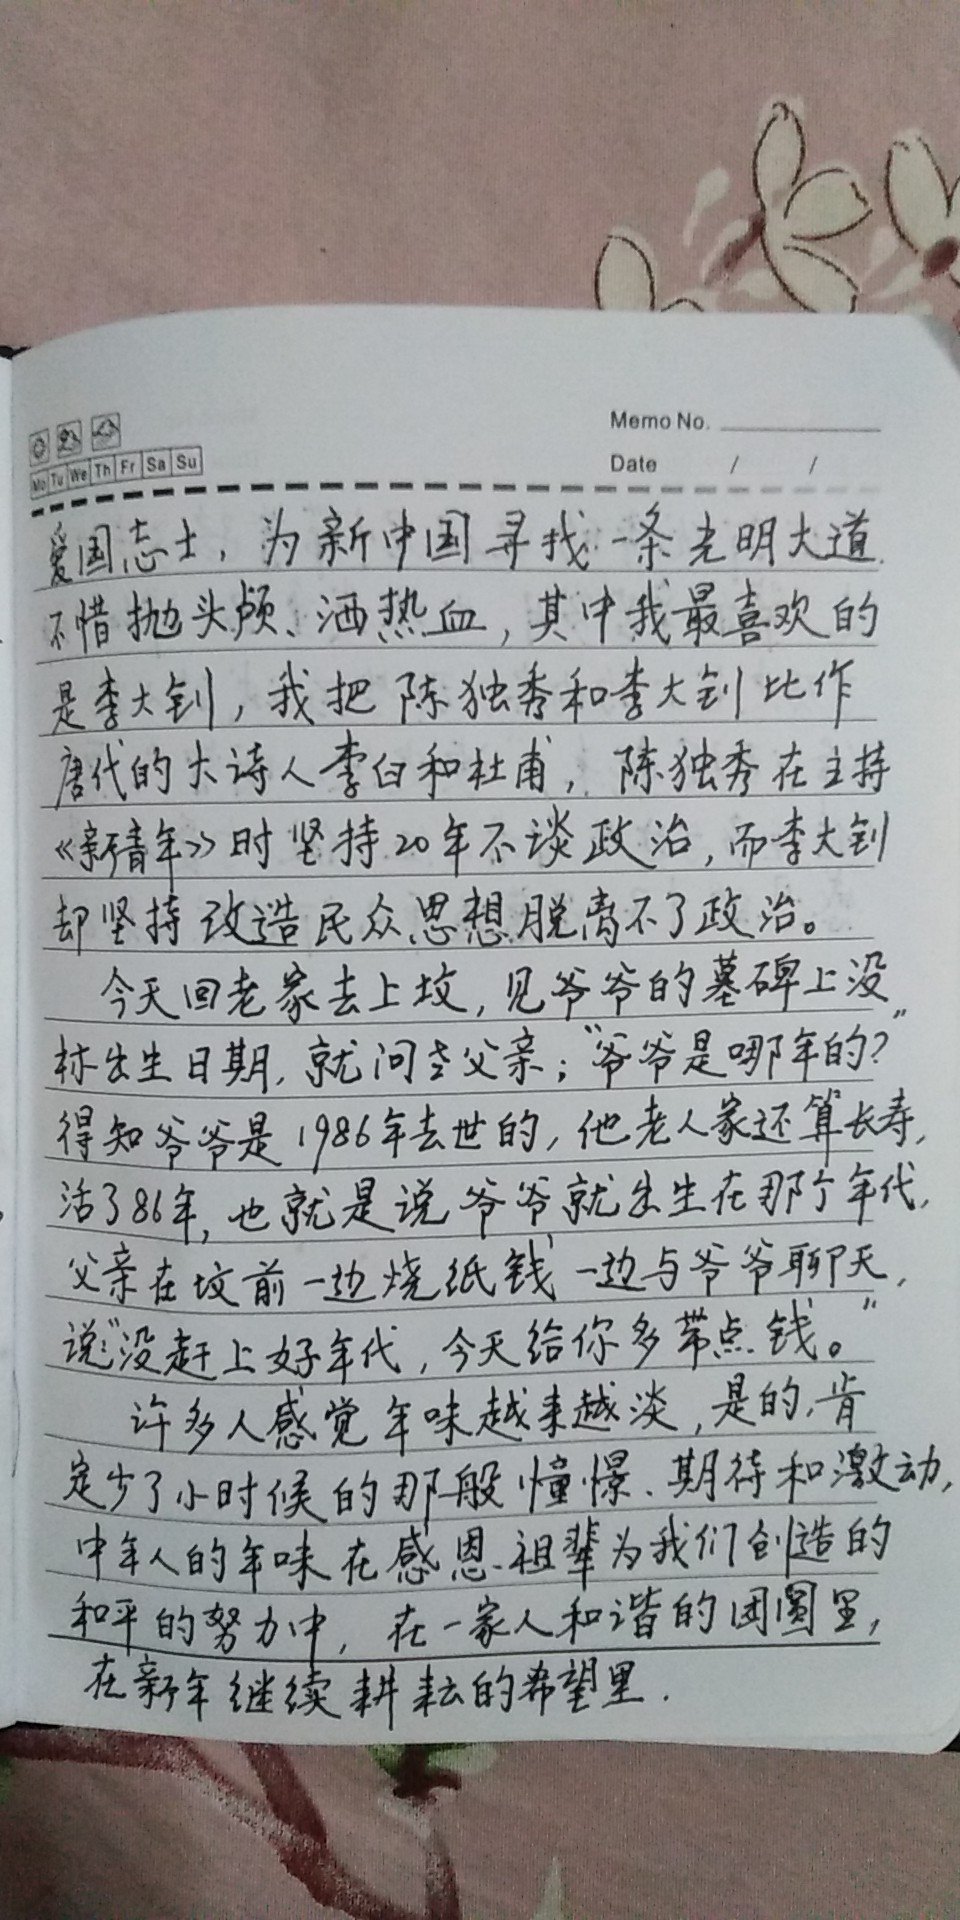 Memo No.
Mo Tu We Th Fr Sa Su
Date / /
爱国志士，为新中国寻找一条光明大道
不惜抛头颅、洒热血，其中我最喜欢的
是李大钊，我把陈独秀和李大钊比作
唐代的大诗人李白和杜甫，陈独秀在主持
《新青年》时坚持20年不谈政治，而李大钊
却坚持改造民众思想脱离不了政治。
今天回老家去上坟，见爷爷的墓碑上没
标出生日期，就问老父亲；“爷爷是哪年的？”
得知爷爷是1986年去世的，他老人家还算长寿，
活了86年，也就是说爷爷就出生在那个年代，
父亲在坟前一边烧纸钱一边与爷爷聊天，
说：“没赶上好年代，今天给你多带点钱。”
许多人感觉年味越来越淡，是的，肯
定少了小时候的那般憧憬、期待和激动，
中年人的年味在感恩祖辈为我们创造的
和平的努力中，在一家人和谐的团圆里，
在新年继续耕耘的希望里.